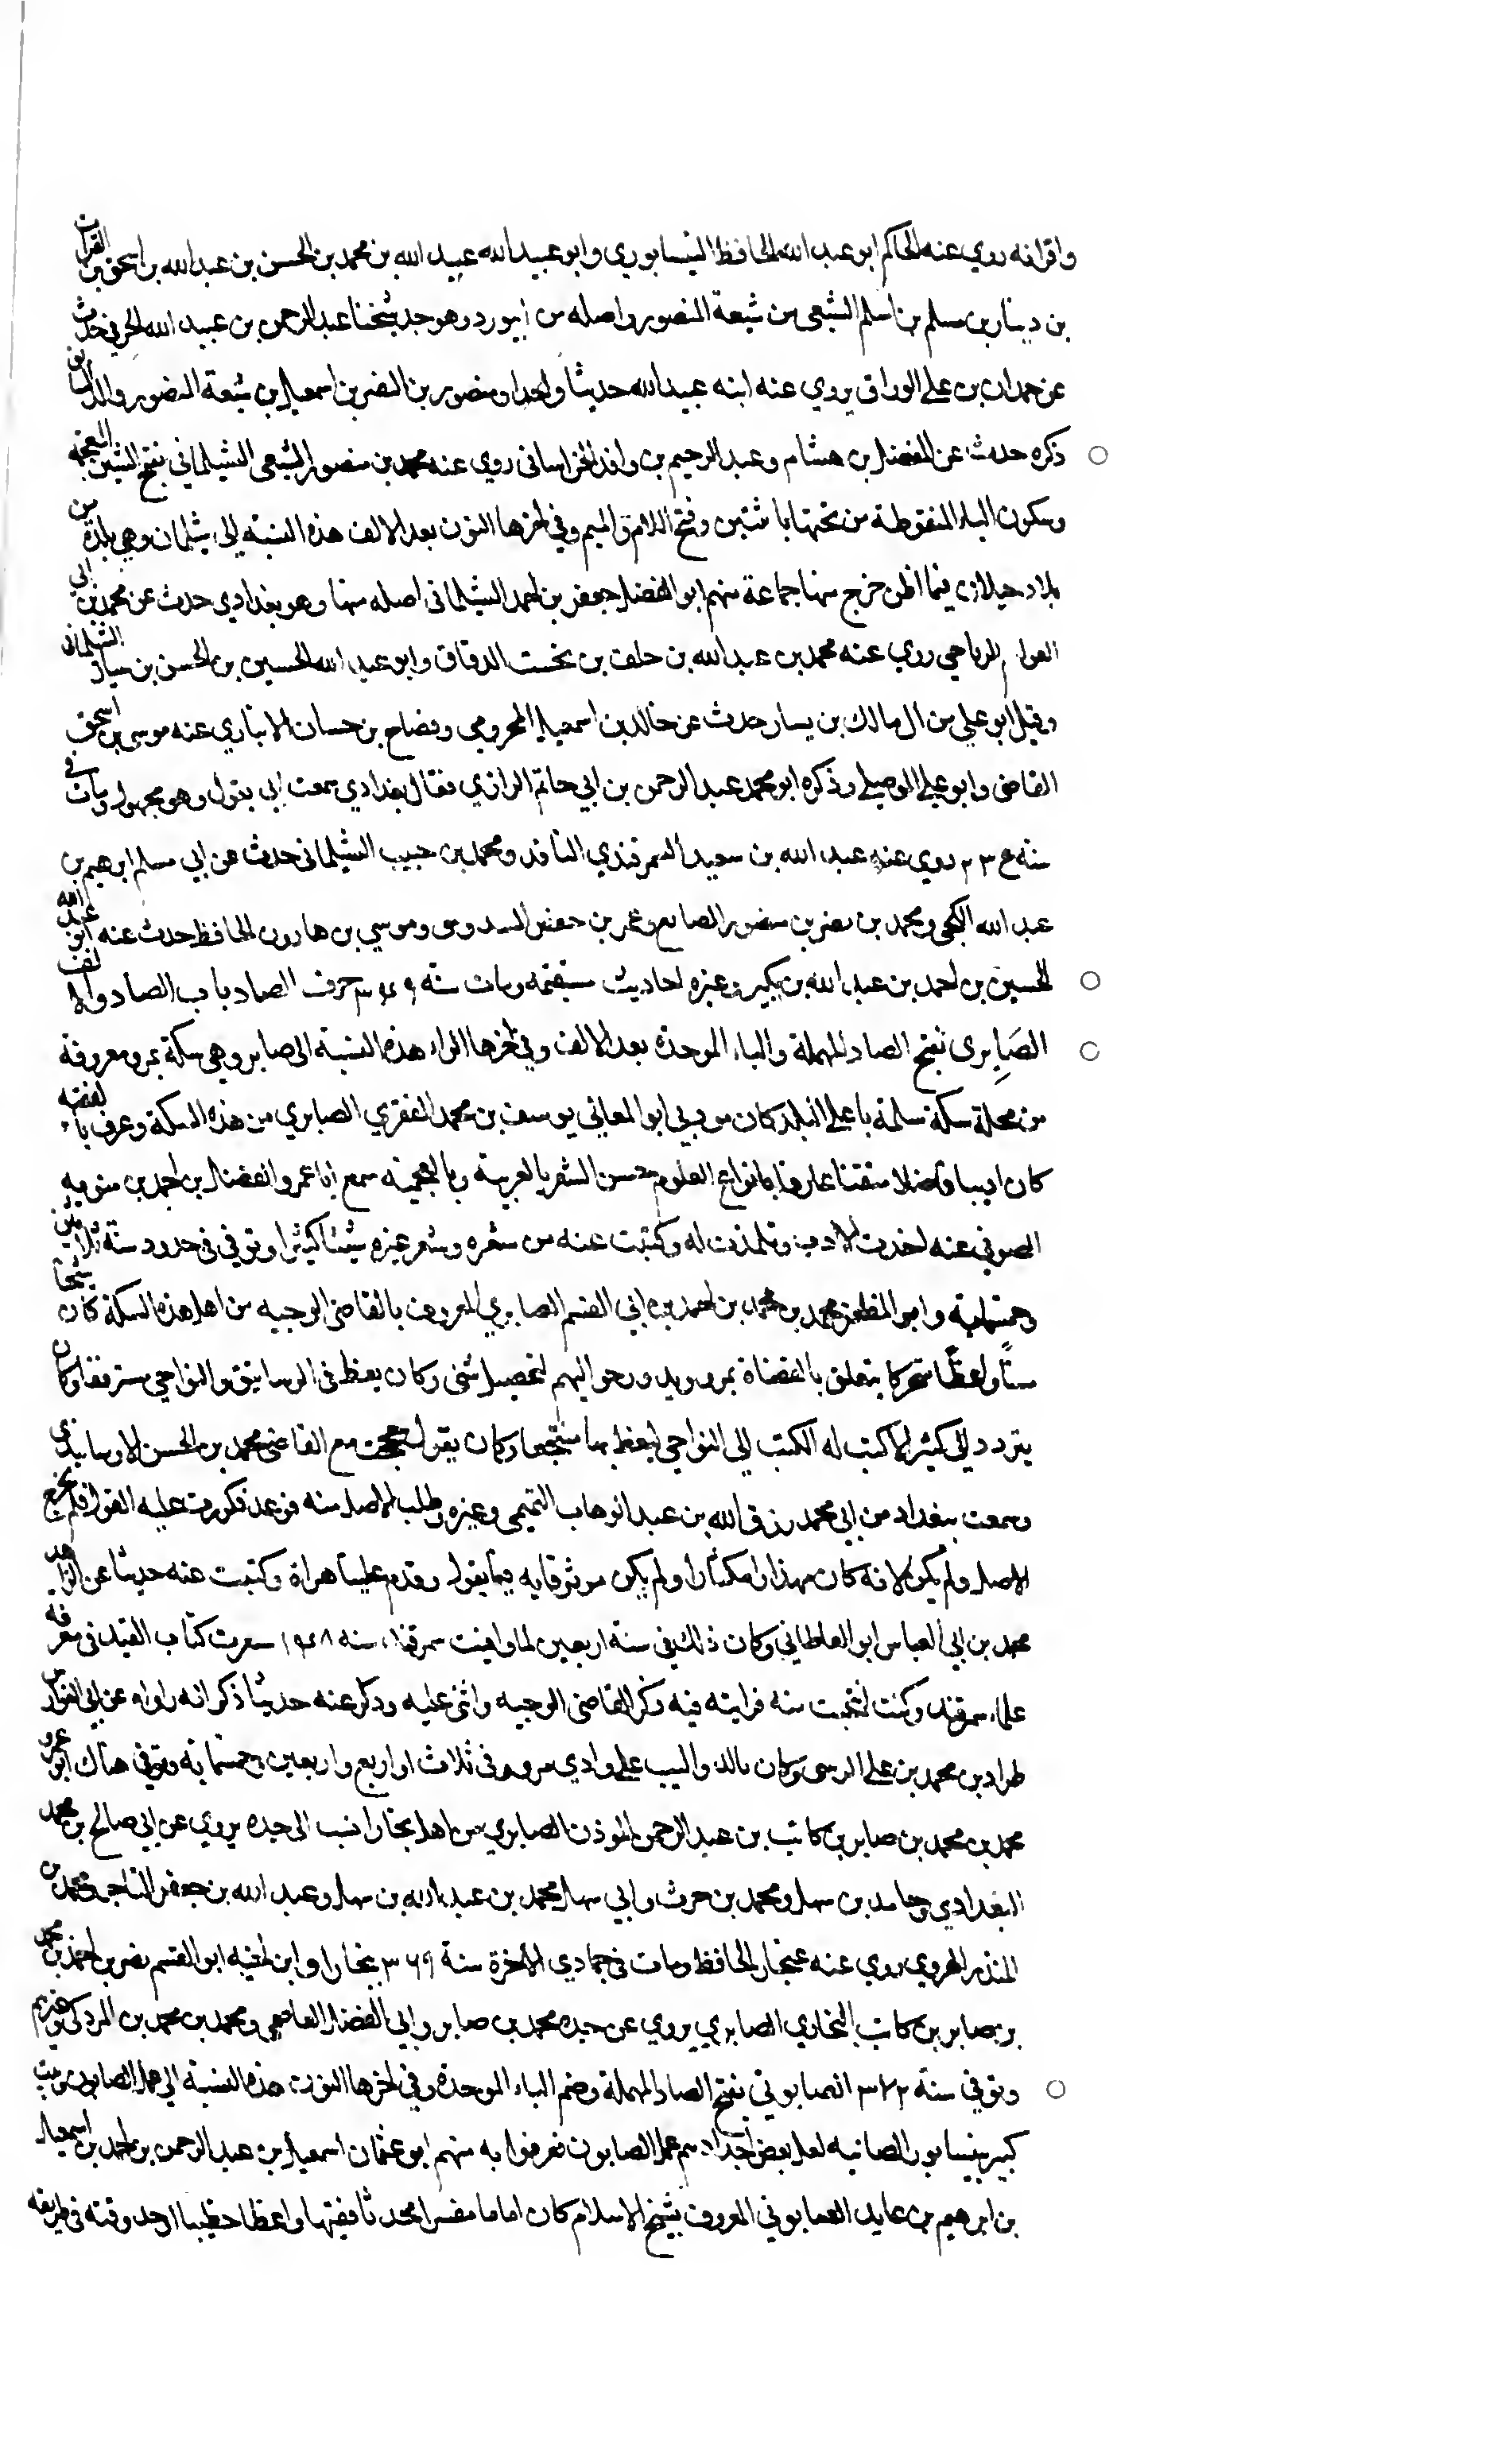 واقرانه روي عنه الحاكم ابو عبد الله الحافظ النيسابوري وابو عبيد الله عبيد الله بن محمد بن الحسن بن عبد الله بن اسحق بن القران
بن دينار بن مسلم بن اسلم الشيعى من شيعة المنصور واصله من ابيورد وهو جد شيخنا عبد الرحمن بن عبيد الله الحرفي حدث
عن حمدان بن علي الوراق يروي عنه ابنه عبيد الله حديثا واحدا ومنصور بن النضر بن اسمعيل بن شيعة المنصور والد السابق
ذكره حدث عن الفضل بن هشام وعبد الرحيم بن وافد الخراسانى روي عنه محمد بن منصور الشيعى الشيلمانى بفتح الشين المعجمة
وسكون الياء المنقوطة من تحتها باثنتين وفتح اللام والميم وفي اخرها النون بعد الالف هذه النسبة الى شيلمان وهي بلدة من
بلاد جيلان فيما اظن خرج منها جماعة منهم ابو الفضل جعفر بن احمد الشيلمانى اصله منها وهو بغدادي حدث عن محمد بن ابي
العوام الرياحي روي عنه محمد بن عبد الله بن خلف بن بخيت الدقاق وابو عبد الله الحسين بن الحسن بن سيار الشيلمانى
وقيل ابو علي من ال مالك بن يسار حدث عن خالد بن اسمعيل المخرومي ووضاح بن حسان الانباري عنه موسى بن اسحق
القاضى وابو علي الموصلي وذكره ابو محمد عبد الرحمن بن ابي حاتم الرازي فقال بغدادي سمعت ابي يقول وهو مجهول ومات في
سنه روي عنه عبد الله بن سعيد السمرقندي الناقد ومحمد بن حبيب الشيلمانى حدث عن ابي مسلم ابرهيم بن
عبد الله الكجى ومحمد بن نصر بن منصور الصايغ وعمر بن حفص السدوسى وموسي بن هارون الحافظ حدث عنه ابو عبد الله
الحسين بن احمد بن عبد الله بن بكير وغيره احاديث مستقيمه ومات سنة حرف الصاد باب الصاد والالف
الصَابِرى بفتح الصاد المهملة والباء الموحدة بعد الالف وفي اخرها الراء هذه النسبة الى صابر وهي سكة بمرو معروفة
من محلة سكة سلمة باعلي البلد كان مودبي ابو المعالي يوسف بن محمد الفقزي الصابري من هذه السكة وعرف بالفقيه
كان اديبا فاضلا متقنا عارفا بانواع العلوم حسن الشعر بالعربية وبالعجمية سمع ابا عمرو الفضل بن احمد بن متويه
الصوفي عنه اخذت الادب وتلمذت له وكتبت عنه من شعره وشعر غيره شيئا كثيرا وتوفي في حدود سنة ثلاثين
وخمسماية وابو المظفر محمد بن محمد بن احمد بن ابي القسم الصابري المعروف بالقاضى الوجيه من اهل هذه السكة كان شيخا
مسنًا واعظًا متحركا يتعلق بالقضاة بمرو ويدور حواليهم لتحصيل شي وكان يعظ فى الرساتيق والنواحي مسترفقا وكان
يتردد الي كثيرا لاكتب له الكتب الى النواحي ليعظ بها منتجعا وكان يقول حججت مع القاضى محمد بن الحسن الارسابندي
وسمعت ببغداد من ابي محمد رزق الله بن عبد الوهاب التميمى وغيره وطلب الاصل منه فوعد فكررت عليه القول فلم يخرج
الاصل ولم يكن الا انه كان مهذارا مكثارا ولم يكن موثوقا به فيما يقول وقدم علينا هراة وكتبت عنه حديثا عن الزاهد
محمد بن ابي العباس ابو الغلطاني وكان ذلك فى سنة اربعين لما وافيت سمرقند سنه سعرت كتاب القند فى معرفة
علماء سمرقند وكنت انتخبت منه فرايته فيه ذكر القاضى الوجيه واثنى عليه وذكر عنه حديثا ذكر انه رواه عن ابي الفوارس
طراد بن محمد بن علي الزينبى وكان علي وادي مرو فى ثلاث او اربع واربعين وخمسماية وتوفي هناك ابو عمرو
محمد بن محمد بن صابر بن كاتب بن عبد الرحمن الموذن الصابري من اهل بخارا نسب الى جده يروي عن ابي صالح بن محمد
البغدادي وحامد بن سهل ومحمد بن حرث وابي سهل محمد بن عبد الله بن سهل وعبد الله بن جعفر التاجر ومحمد بن
المنذر الهروي روي عنه غنجار الحافظ ومات فى جمادي الاخرة سنة ٣٦٩ ببخارا وابن اخيه ابو القسم نصر بن احمد بن محمد
بن صابر بن كاتب البخاري الصابري يروي عن جده محمد بن صابر وابي الفضل العاصمي ومحمد بن محمد بن المردكي وغيرهم
وتوفي سنة الصابوني بفتح الصاد المهملة وضم الباء الموحدة وفي اخرها النون هذه النسبة الى عمل الصابون وبيت
كبير بنيسابور الصابونيه لعل بعض اجدادهم عمل الصابون فعرفوا به منهم ابو عثمان اسمعيل بن عبد الرحمن بن احمد بن اسمعيل
بن ابرهيم بن عابد الصابوني المعروف بشيخ الاسلام كان اماما مفسرا محدثا فقيها واعظا خطيبا اوحد وقته فى طريقه